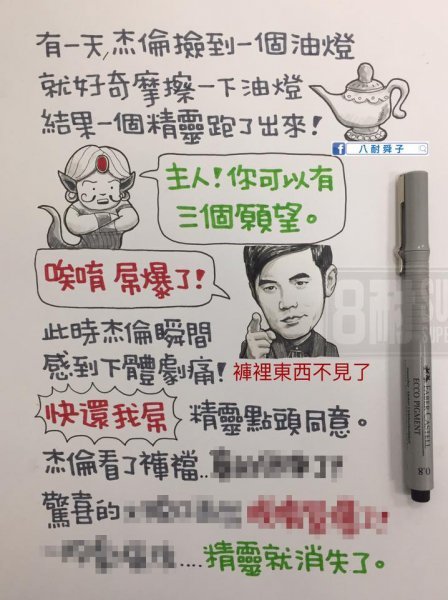 有一天,杰倫撿到一個油燈
就好奇摩擦一下油燈
結果一個精靈跑了出來!
八耐舜子
主人!你可以有
三個願望。
唉唷 屌爆了!
此時杰倫瞬間
感到下體劇痛!
褲裡東西不見了
快還我屌
精靈點頭同意。
杰倫看了褲襠..
驚喜的
....精靈就消失了。
FABER-CASTELL
ECCO PIGMENT
0.8